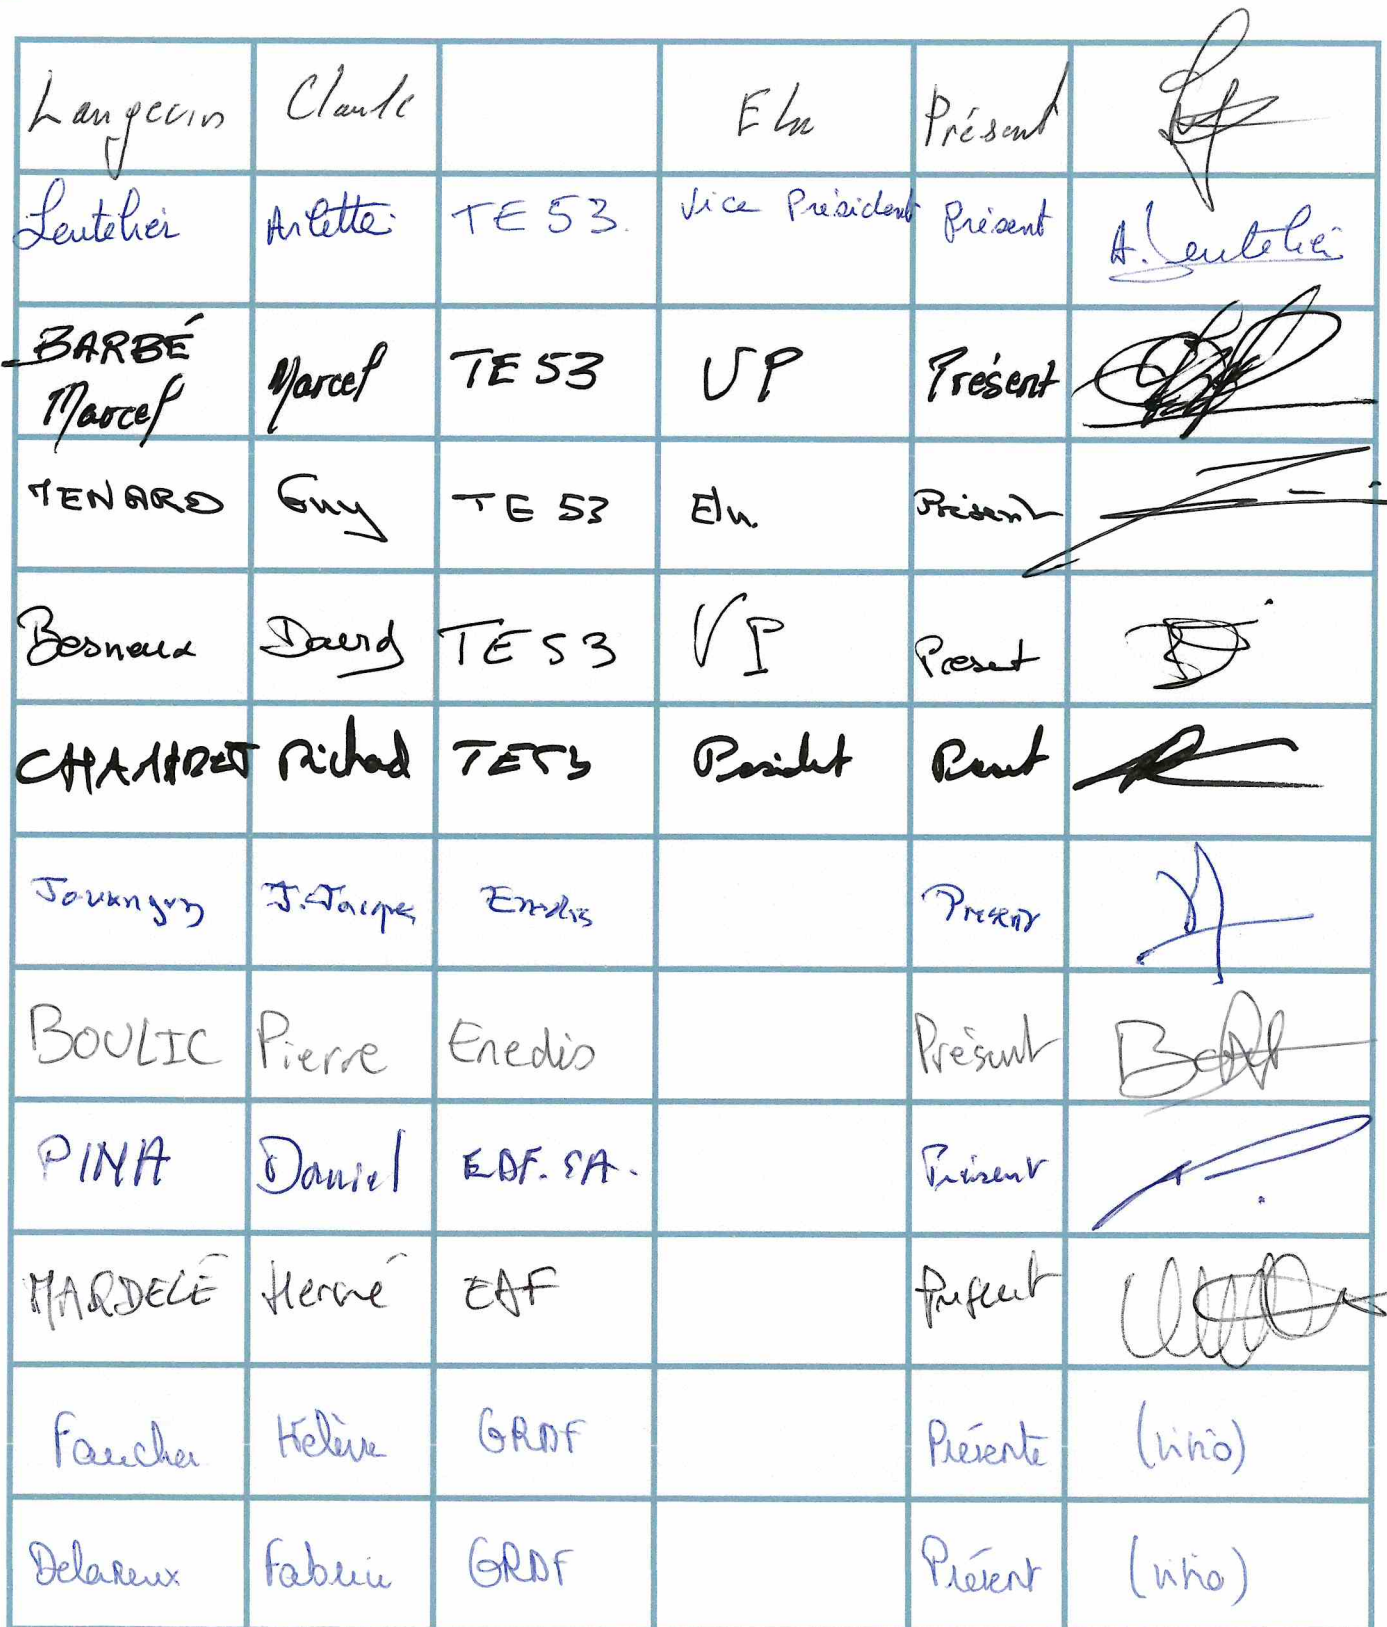 Langevin Claude Elu Présent
Leutelier Arlette TE 53. Vice Président Présent A. Leutelier
BARBÉ
Marcel Marcel TE 53 VP Présent
MENARD Guy TE 53 Elu. Présent
Besneux David TE 53 VP Présent
CHAMARET Richard TE53 Président Présent
J. Jacques Enedis Présent
BOULIC Pierre Enedis Présent
PINA Daniel EDF. SA. Présent
MARDELÉ Hervé EDF Présent
Faucher Hélène GRDF Présente (visio)
Delareux Fabrice GRDF Présent (visio)